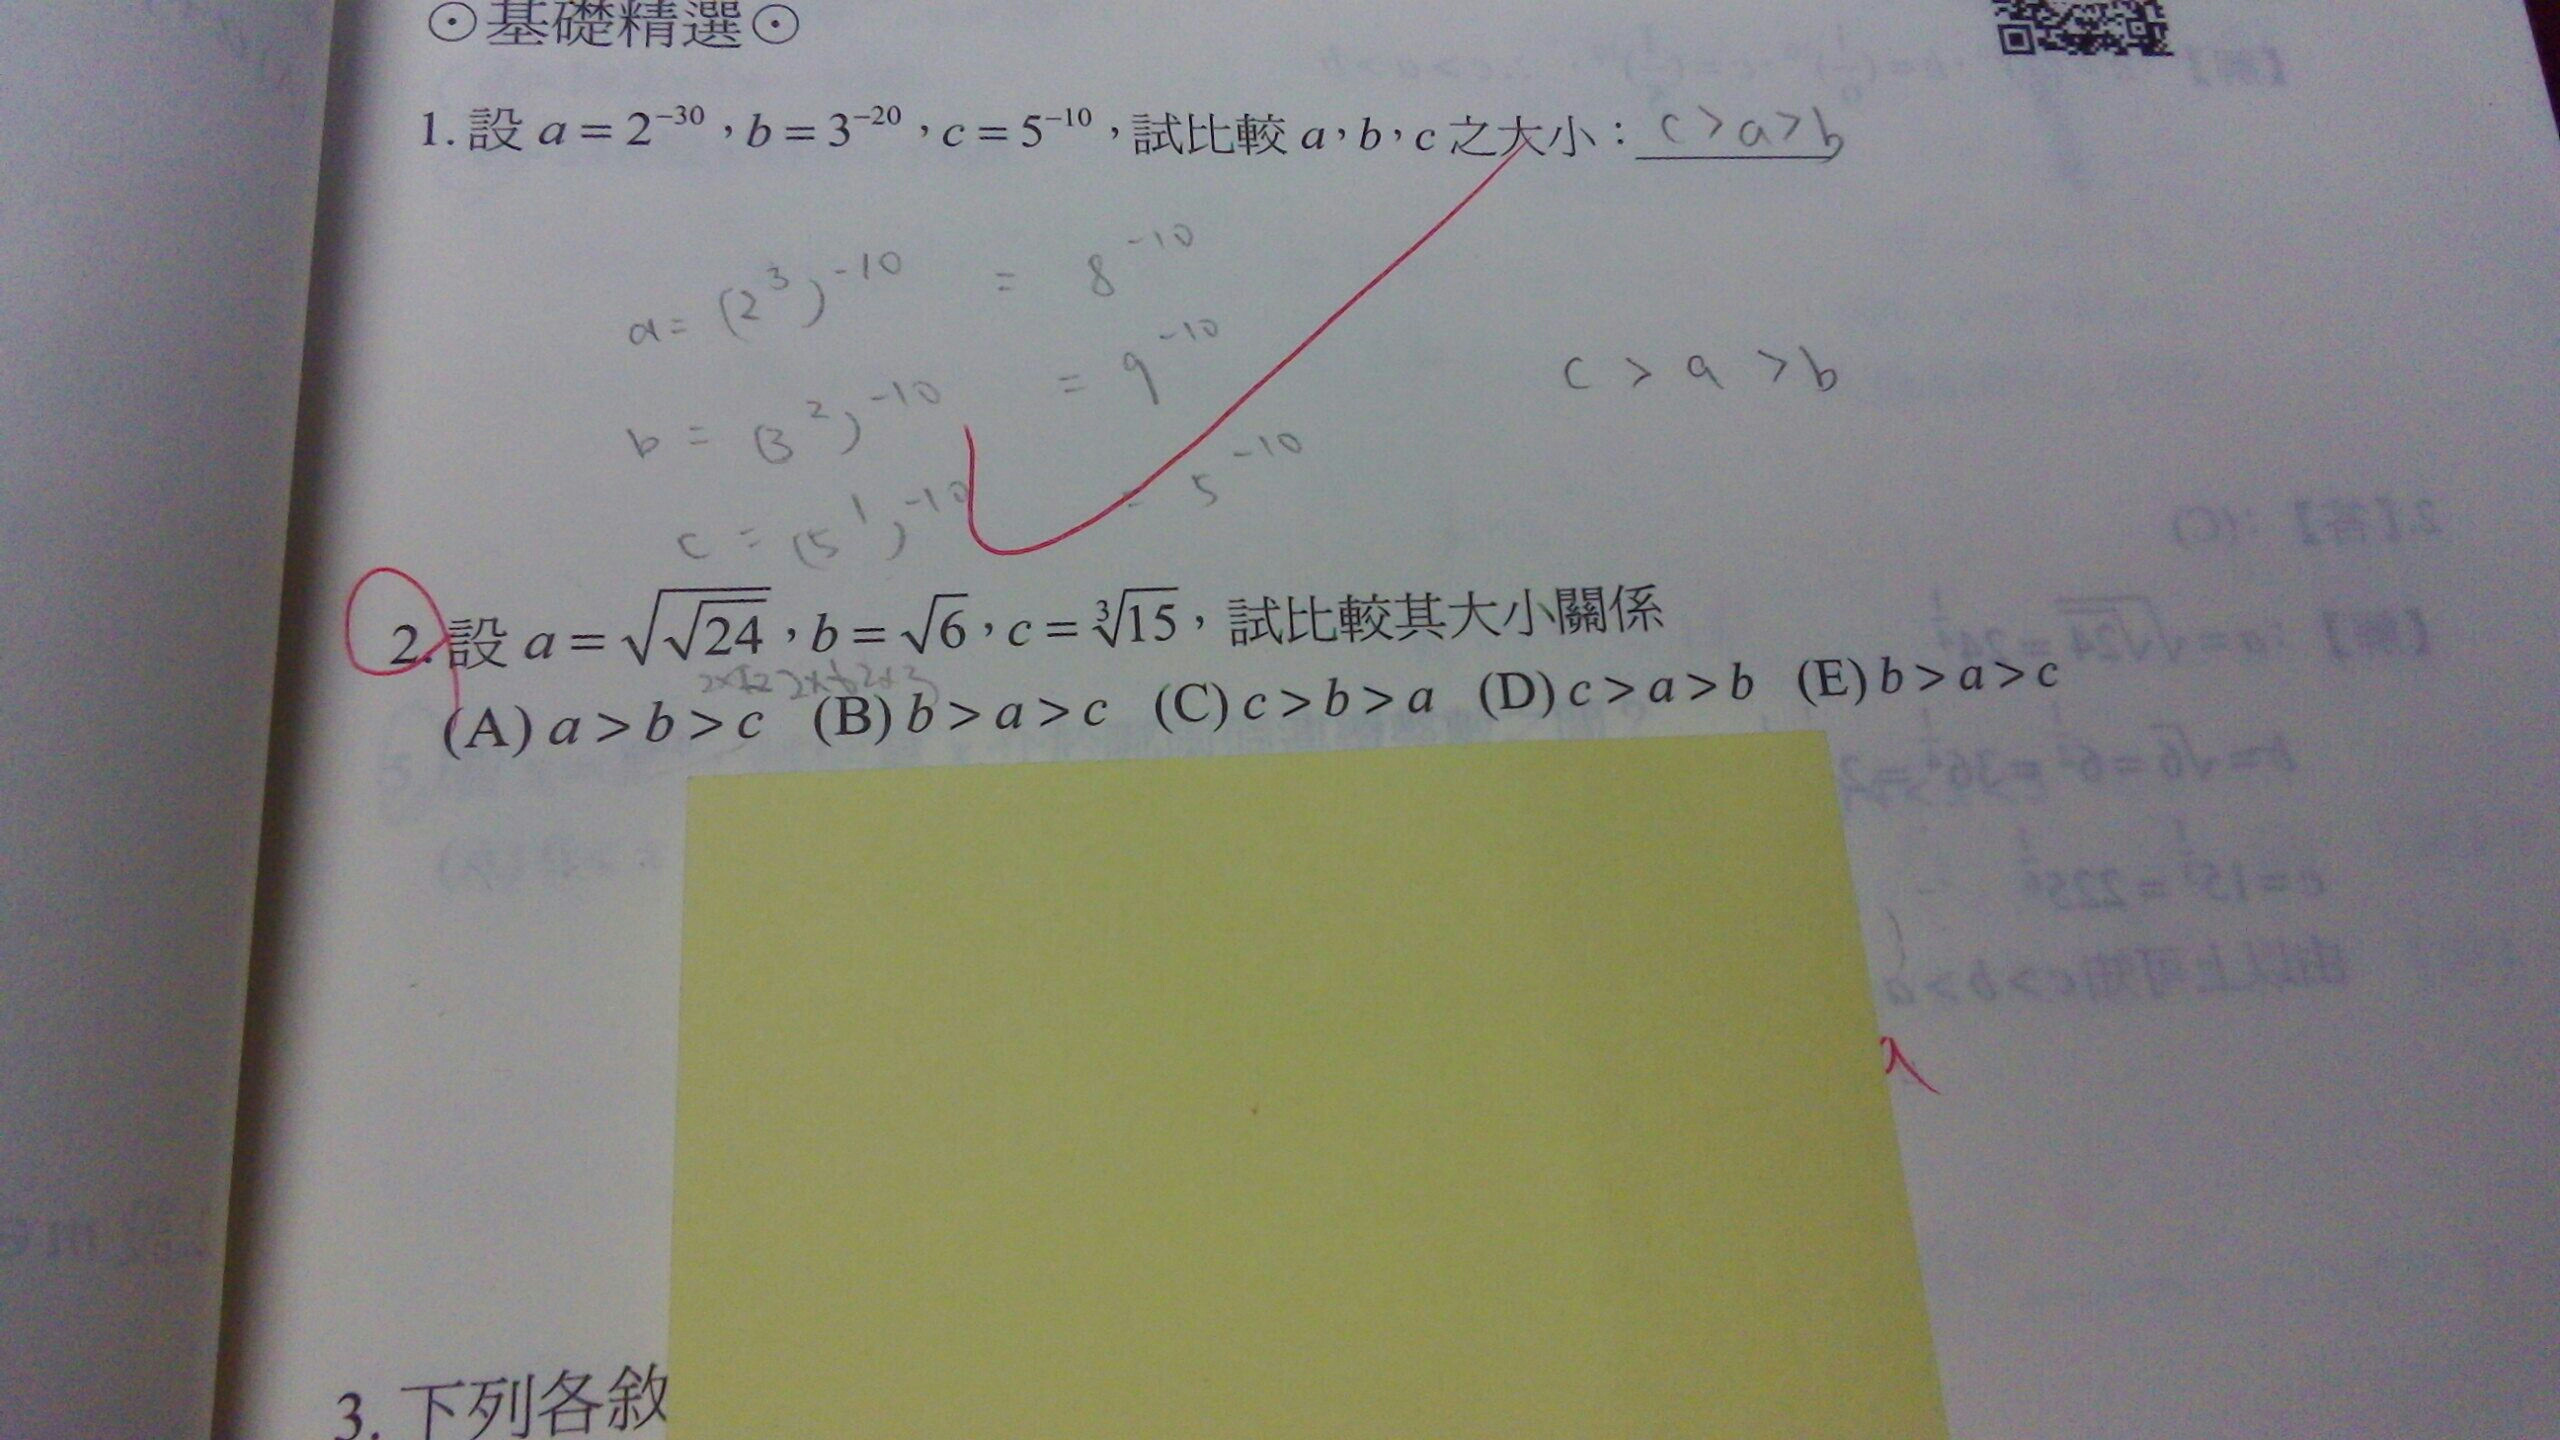 ⊙基礎精選⊙
1. 設 a = 2⁻³⁰，b = 3⁻²⁰，c = 5⁻¹⁰，試比較 a，b，c 之大小：c > a > b
a = (2³)⁻¹⁰ = 8⁻¹⁰
b = (3²)⁻¹⁰ = 9⁻¹⁰
c > a > b
c = (5¹)⁻¹⁰ = 5⁻¹⁰
2. 設 a = √√24，b = √6，c = ³√15，試比較其大小關係
(A) a > b > c (B) b > a > c (C) c > b > a (D) c > a > b (E) b > a > c
a
3. 下列各敘